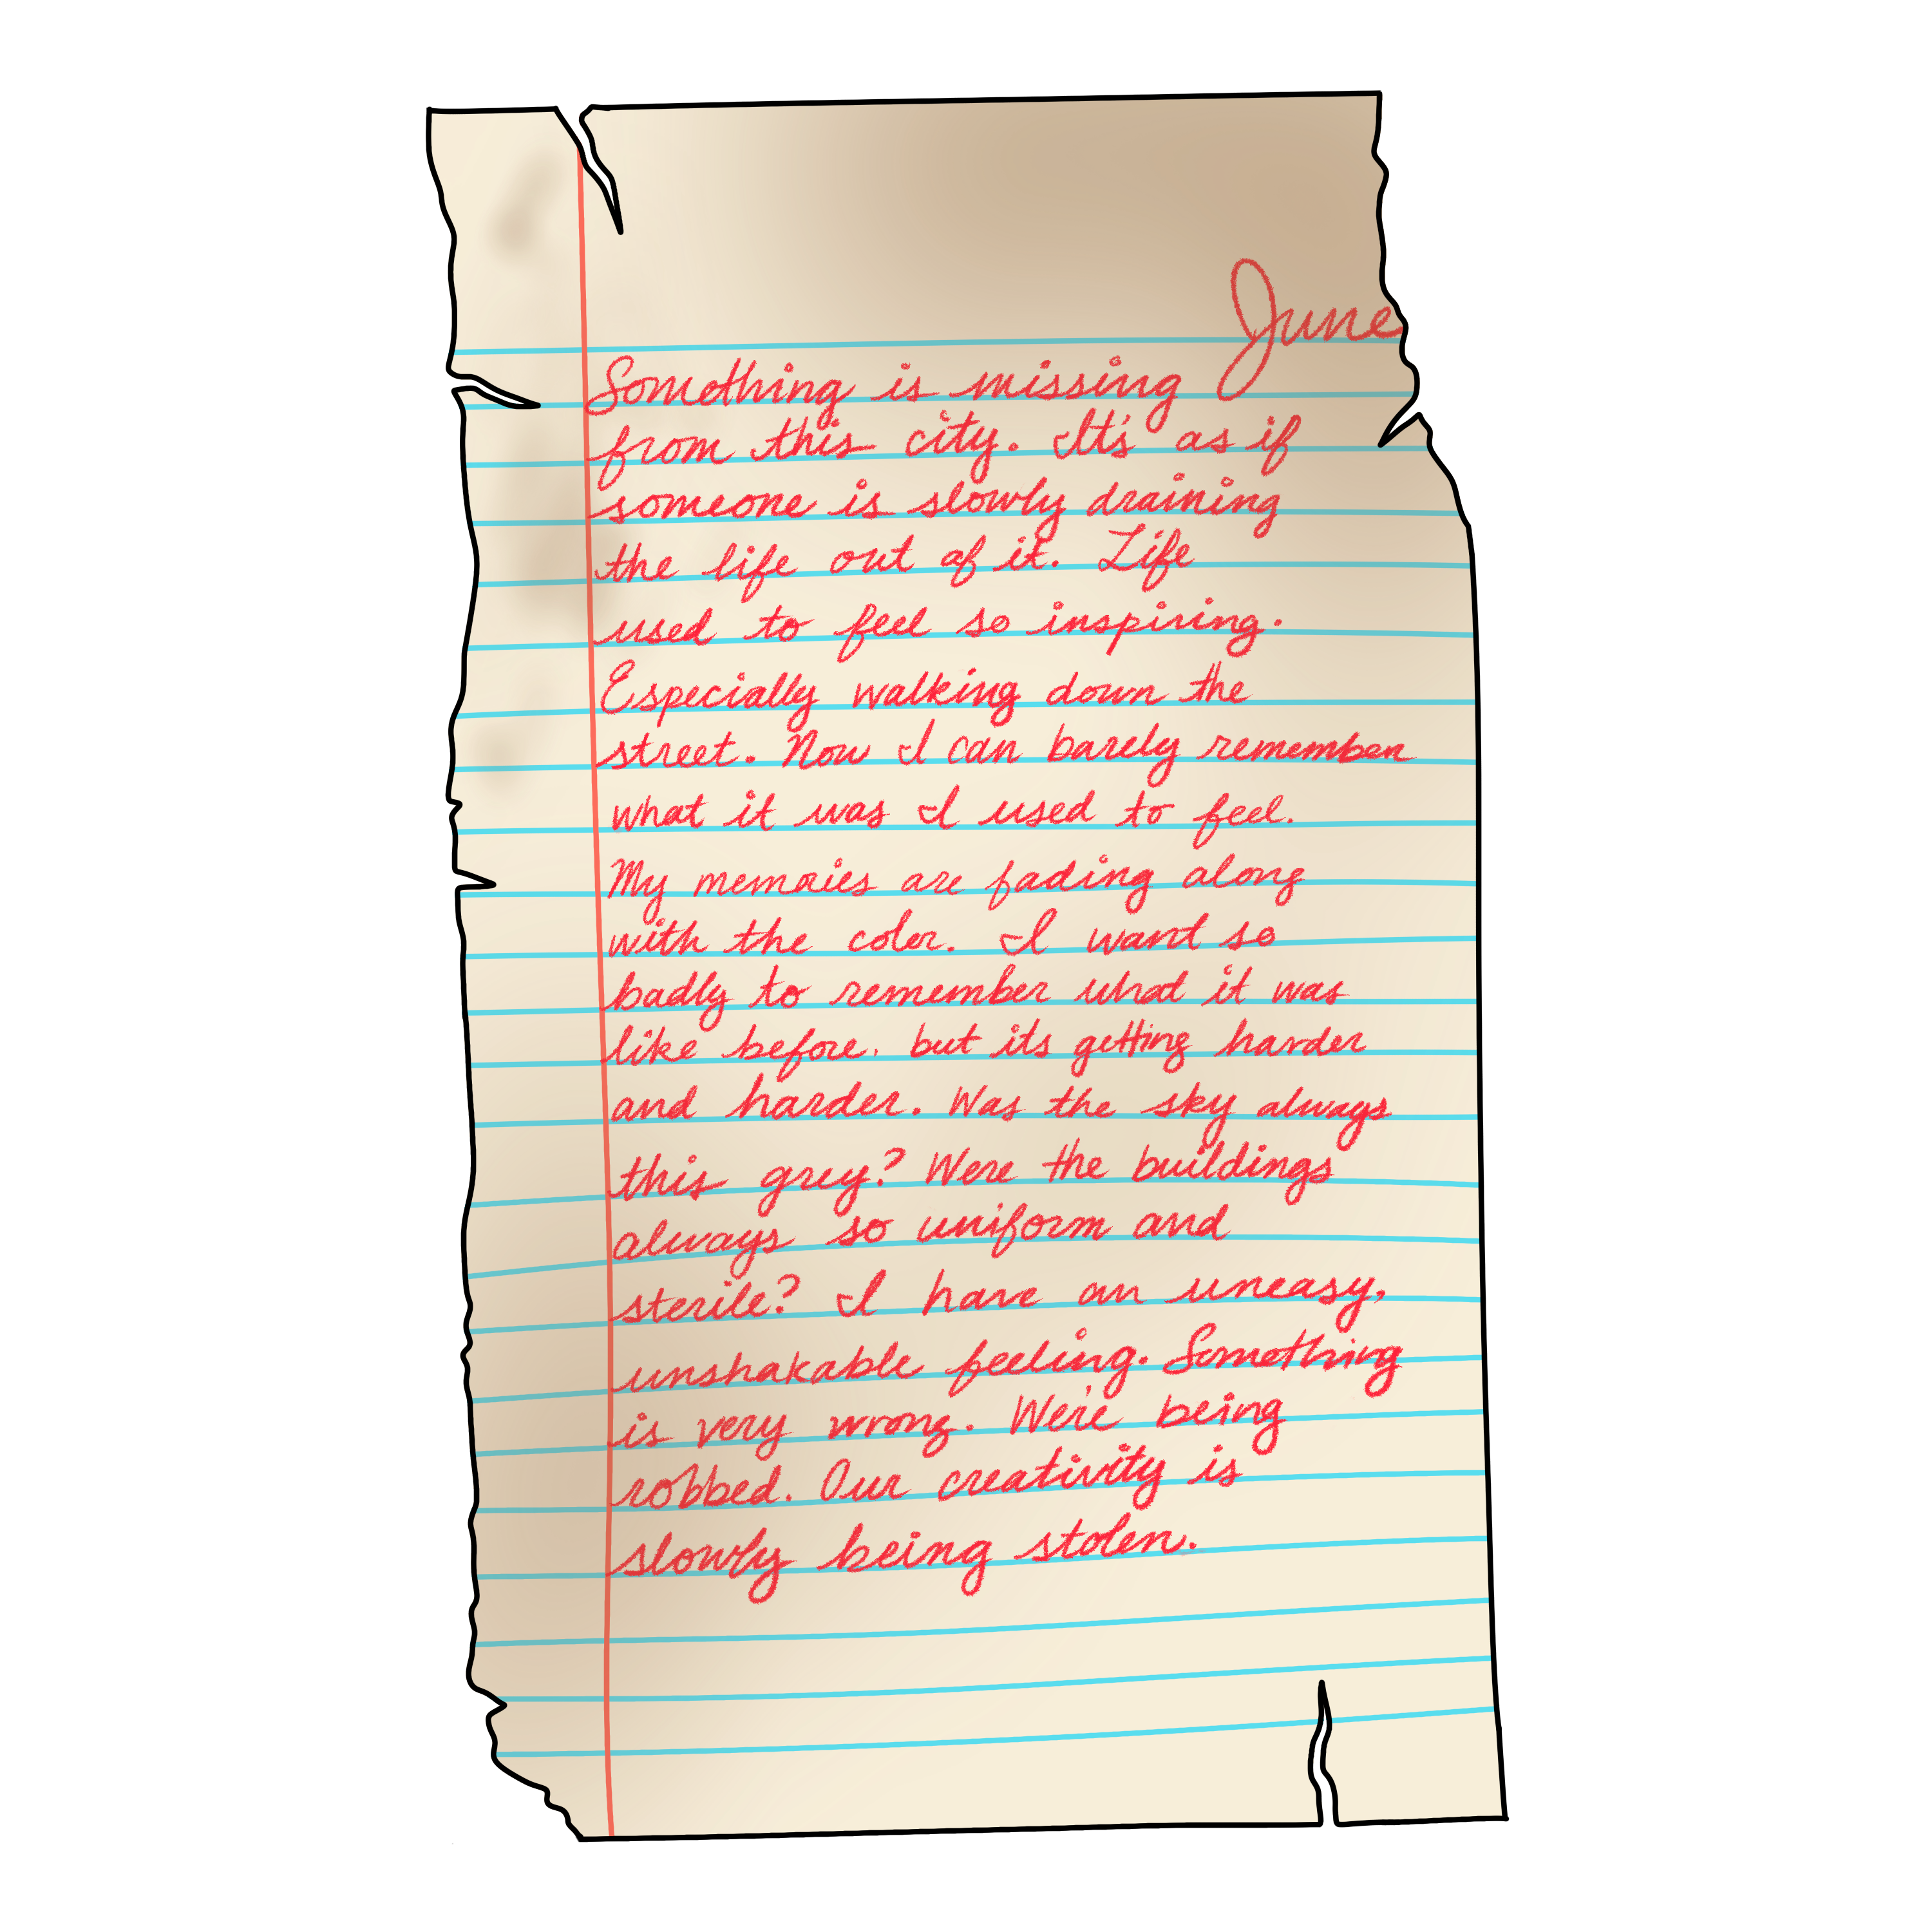 June
Something is missing
from this city. It's as if
someone is slowly draining
the life out of it. Life
used to feel so inspiring.
Especially walking down the
street. Now I can barely remember
what it was I used to feel.
My memories are fading along
with the color. I want so
badly to remember what it was
like before, but its getting harder
and harder. Was the sky always
this grey? Were the buildings
always so uniform and
sterile? I have an uneasy,
unshakable feeling. Something
is very wrong. We're being
robbed. Our creativity is
slowly being stolen.